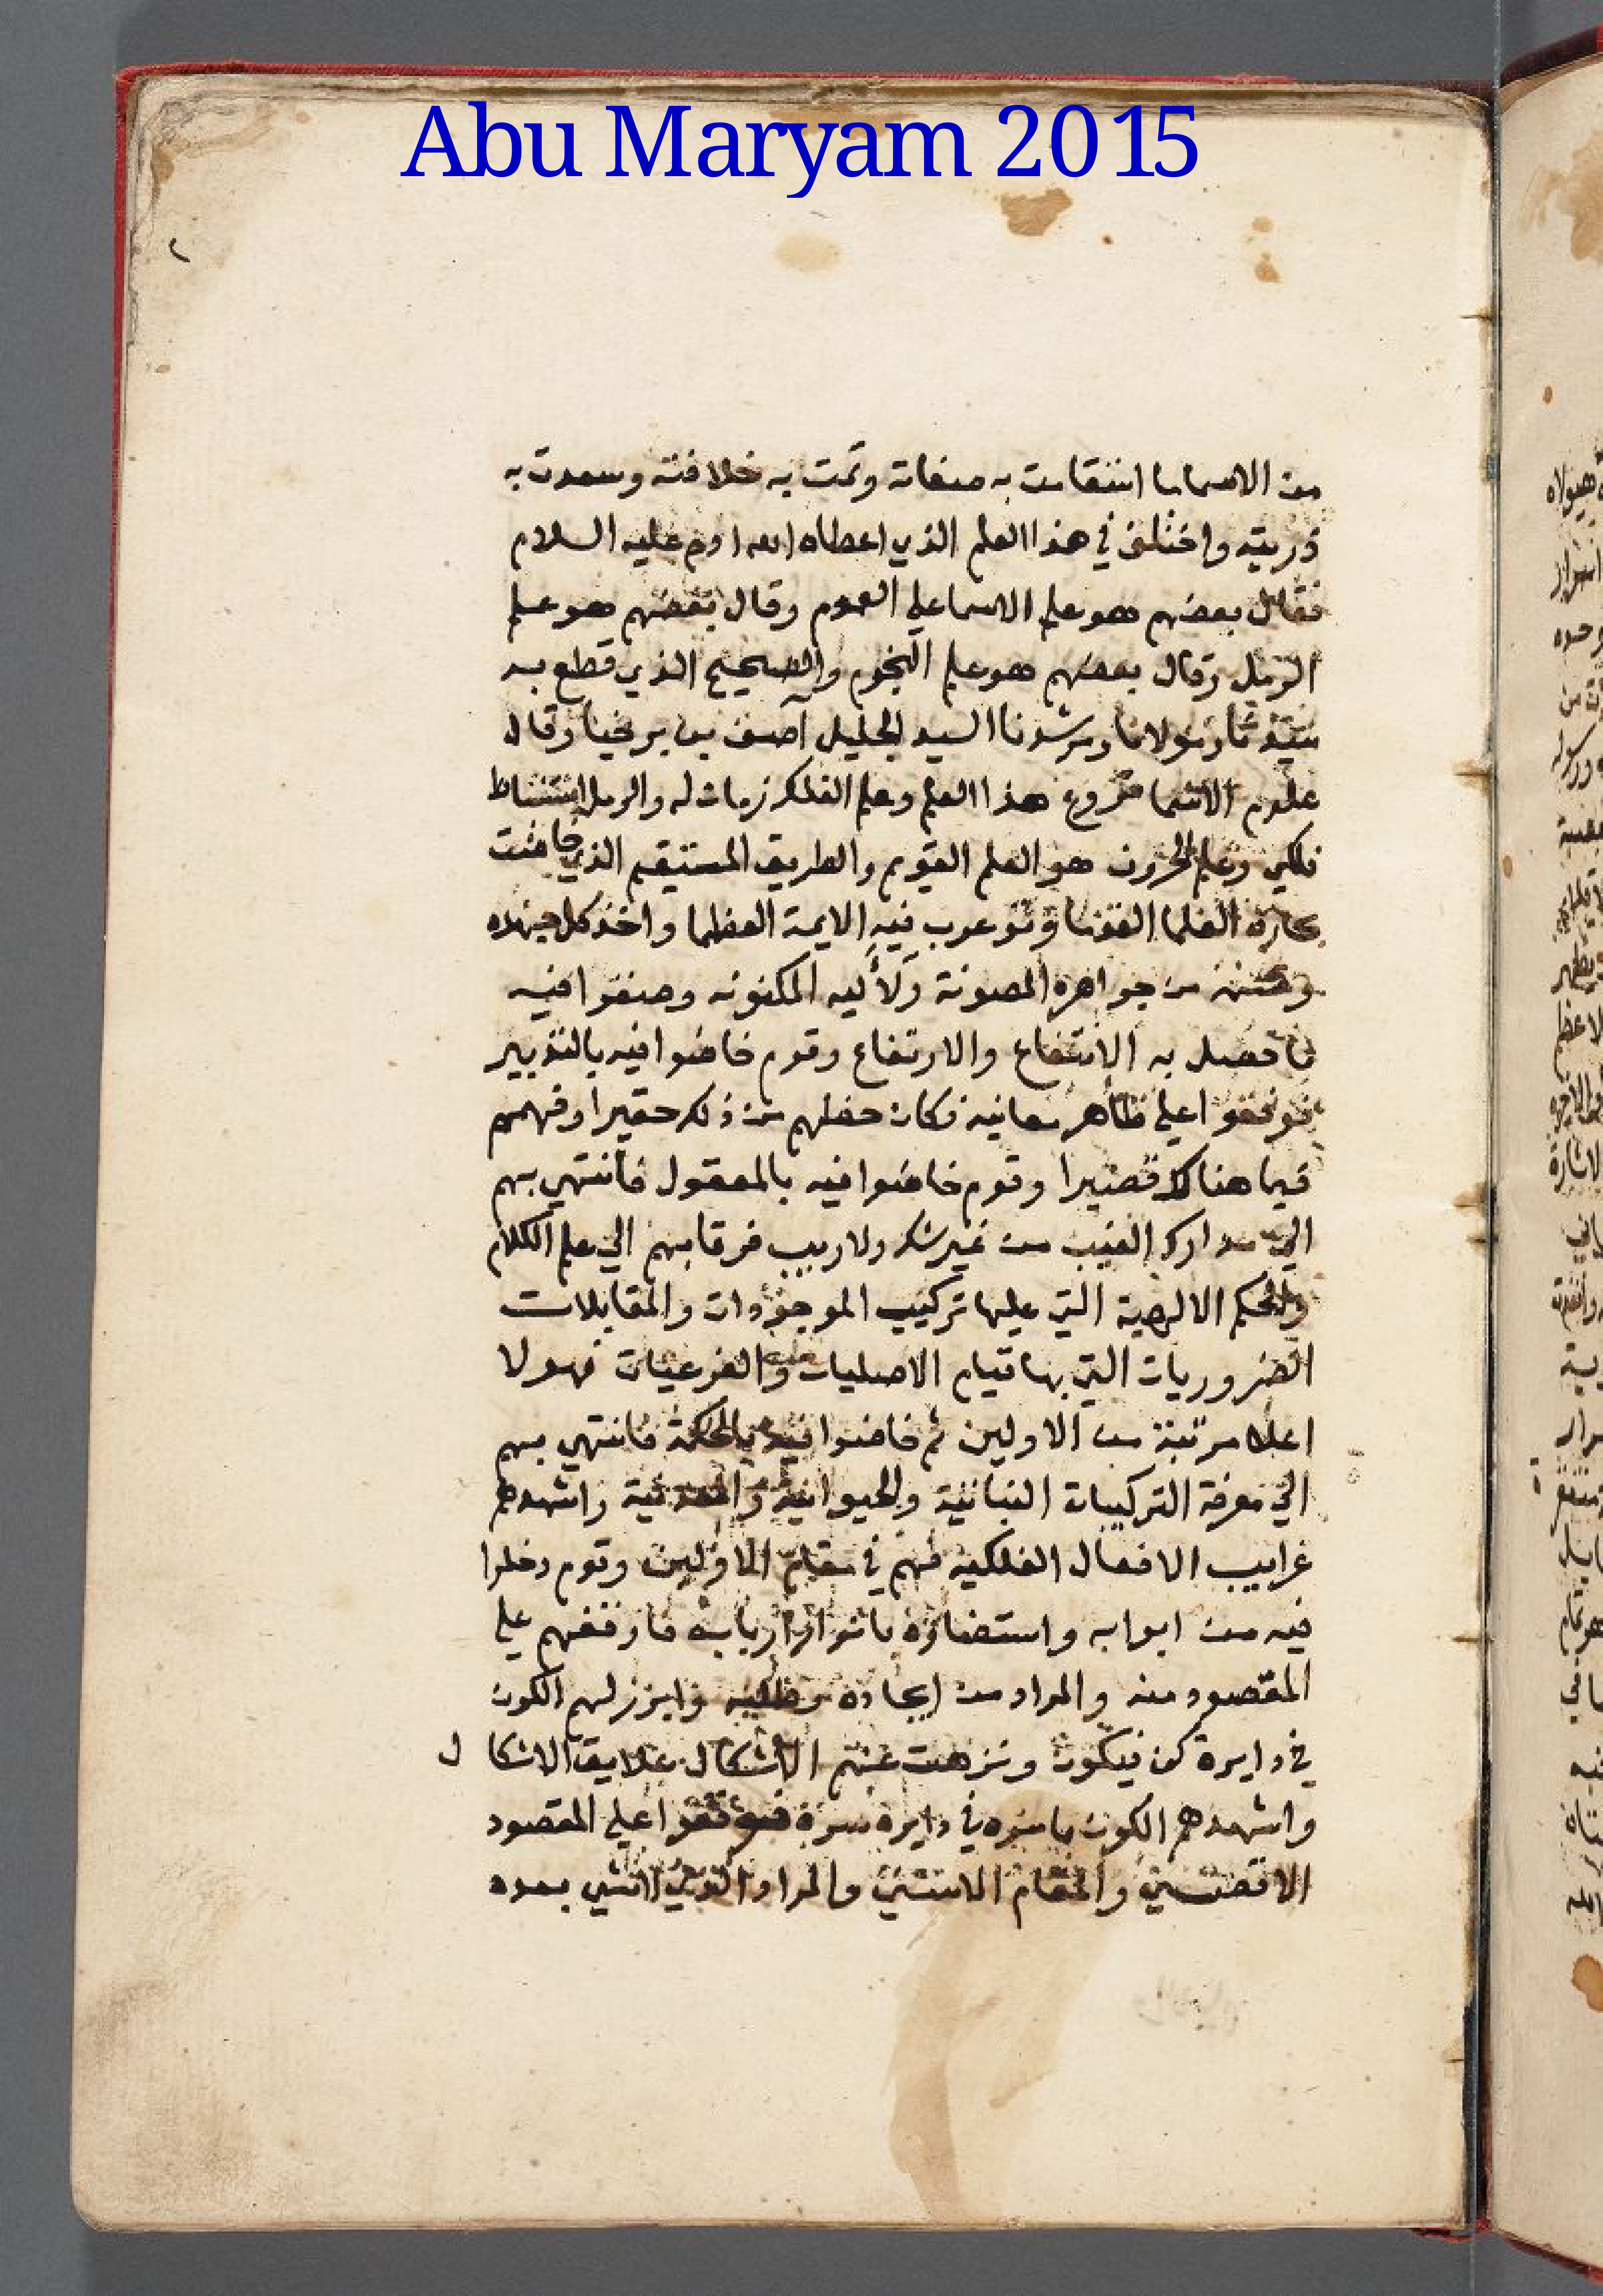 Abu Maryam 2015
٢
من الاسما ما استقامت به صفاته وتمت به خلافته وسعدت به
ذريته واختلف في هذا العلم الذي اعطاه الله ادم عليه السلام
فقال بعضهم هو علم الاسما علي العموم وقال بعضهم هو علم
الرمل وقال بعضهم هو علم النجوم والصحيح الذي قطع به
سيدنا ومولانا ومرشدنا السيد الجليل آصف بن برخيا وقال
علوم الاسما فروع هذا العلم وعلم الفلك زمان له والرمل استنباط
فلكي وعلم الحروف هو العلم القويم والطريق المستقيم الذي خاضت
بحاره العلما وتوعوب فيه الايمة العظما واخذ كل جهده
من جواهره المصونة ولآليه المكنونه وصنفوا فيه
ما حصل به الانتفاع والارتفاع وقوم خاضوا فيه بالتدبير
فوقفوا علي ظاهر معانيه فكان حظهم من ذلك حقيرا وفهمهم
فيما هنالك قصيرا وقوم خاضوا فيه بالمعقول فانتهي بهم
الي مدارك الغيب من غير شك ولا ريب فرقا بهم الي علم الكلام
والحكم الالهية التي عليها تركيب الموجودات والمقابلات
الضروريات التي بها قيام الاصليات والفرعيات فهولا
اعلا مرتبة من الاولين ثم خاضوا فيه بالحكمة فانتهي بهم
الي معرفة التركيبات النباتية والحيوانية والمعدنية واشهدهم
غرايب الافعال الفلكية فهم في مقام الاولين وقوم دخلوا
فيه من ابوابه واستضاوه بانوار اربابه فاوقفهم علي
المقصود منه والمراد من ايجاده وابرز لهم الكون
في دايرة كن فيكون ونزهت عنهم الاشكال علايق الاشكال
واشهدهم الكون باسره في دايرة سره فوقفوا علي المقصود
الاقصي والمقام الاسني والمراد الذي لاشي بعده